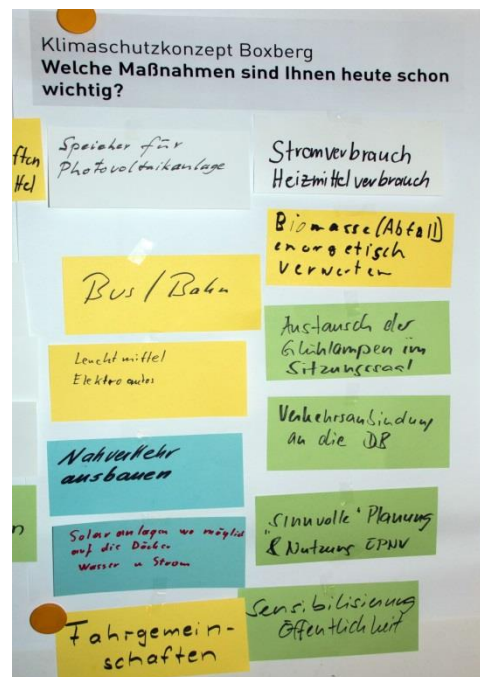 Klimaschutzkonzept Boxberg
Welche Maßnahmen sind Ihnen heute schon
wichtig?
Speicher für
Photovoltaikanlage
Bus / Bahn
Leuchtmittel
Elektroautos
Nahverkehr
ausbauen
Solaranlagen wo möglich
auf die Dächer
Wasser u Strom
Fahrgemein-
schaften
Stromverbrauch
Heizmittelverbrauch
Biomasse (Abfall)
energetisch
verwerten
Austausch der
Glühlampen im
Sitzungssaal
Verkehrsanbindung
an die DB
"Sinnvolle" Planung
& Nutzung ÖPNV
Sensibilisierung
Öffentlichkeit